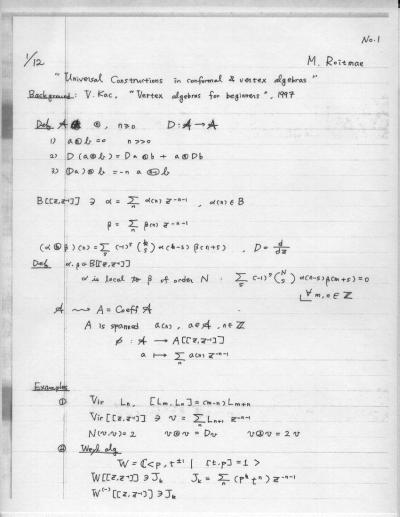 No.1
1/12
M. Roitman
"Universal Constructions in conformal & vertex algebras"
Background: V. Kac, "Vertex algebras for beginners", 1997
Def 𝒜 ⓝ, n≥0 D: 𝒜 → 𝒜
1) a ⓝ b = 0 n >> 0
2) D(a ⓝ b) = Da ⓝ b + a ⓝ Db
3) (Da) ⓝ b = -n a (n-1) b
B[[z,z⁻¹]] ∋ α = Σ_n α(n) z^{-n-1}, α(n) ∈ B
β = Σ_n β(n) z^{-n-1}
(α ⓚ β)(n) = Σ_s (-1)^s (k s) α(k-s) β(n+s), D = d/dz
Def α, β ∈ B[[z,z⁻¹]]
α is local to β of order N : Σ_s (-1)^s (N s) α(n-s) β(m+s) = 0
∀ m, n ∈ ℤ
𝒜 ⇝ A = Coeff 𝒜
A is spanned a(n), a∈𝒜, n∈ℤ
φ : 𝒜 → A[[z,z⁻¹]]
a ↦ Σ_n a(n) z^{-n-1}
Examples
① Vir L_n, [L_m, L_n] = (m-n) L_{m+n}
Vir[[z,z⁻¹]] ∋ v = Σ_n L_{n+1} z^{-n-1}
N(v,v)=2 v ⓪ v = Dv v ① v = 2v
② Weyl alg
W = ℂ<p, t^{±1} | [t,p]=1>
W[[z,z⁻¹]] ∋ J_k J_k = Σ_n (p^k t^n) z^{-n-1}
W^{(-)}[[z,z⁻¹]] ∋ J_k